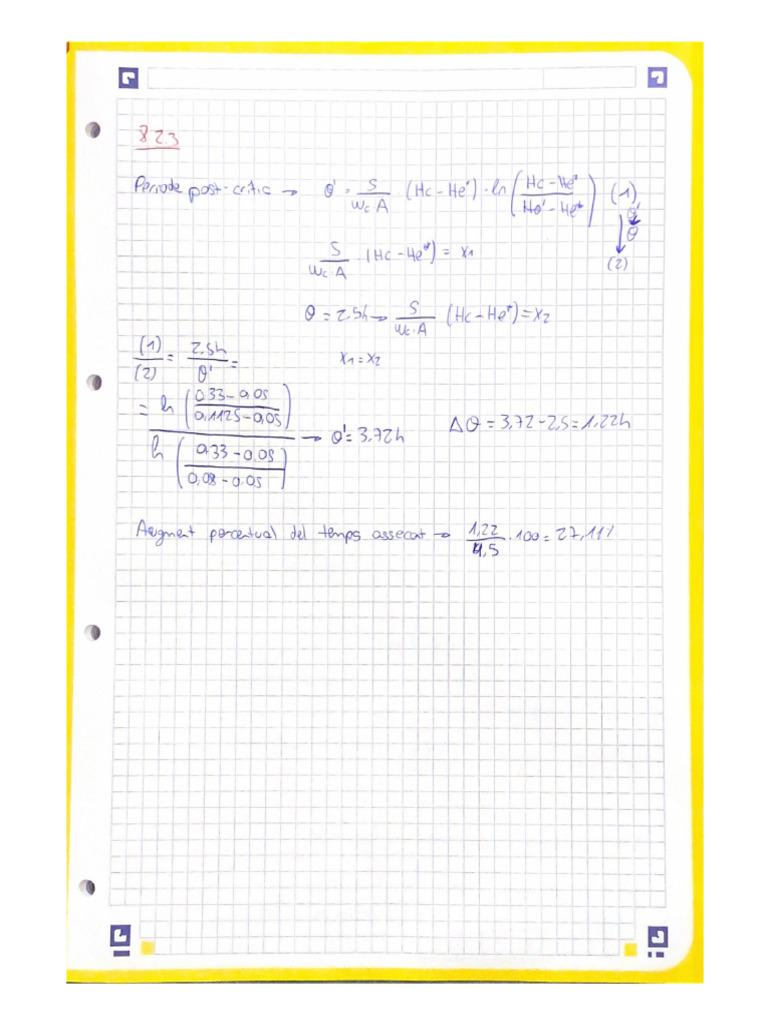 823
Periode post-crític → θ' = S/(Wc A) · (Hc - He*) · ln ((Hc - He*)/(Hθ' - He*)) (1)
θ'
θ
S/(Wc·A) · (Hc - He*) = x1
(2)
θ = 2.5h → S/(Wc·A) (Hc - He*) = x2
(1)/(2) = 2.5h/θ' =
x1 = x2
= ln ((0,33 - 0,05)/(0,1125 - 0,05)) / ln ((0,33 - 0,05)/(0,08 - 0,05)) → θ' = 3,72h
Δθ = 3,72 - 2,5 = 1,22h
Augment percentual del temps assecat → 1,22/4,5 · 100 = 27,11%